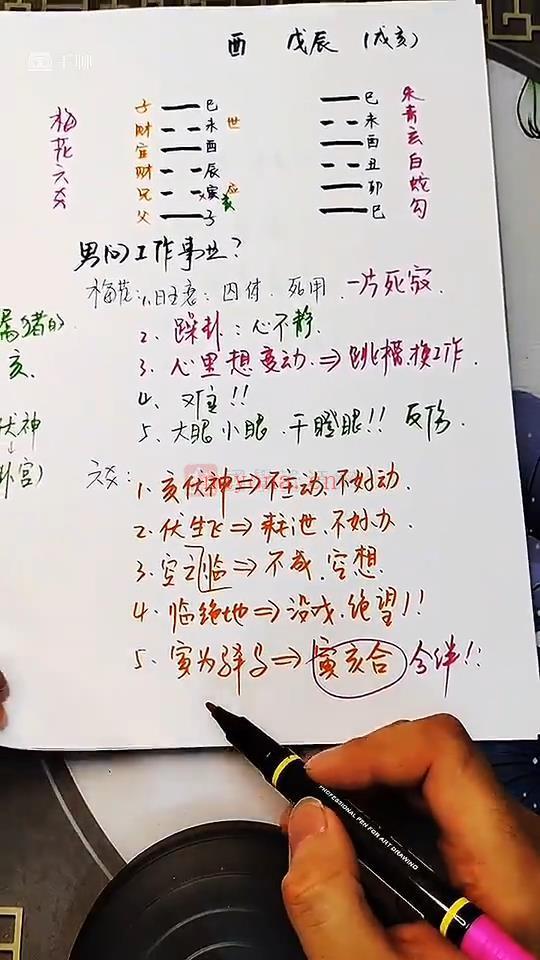 千聊
酉 戊辰 (戌亥)
梅花六爻
子 巳 巳 朱
财 未 世 未 青
官 酉 酉 玄
财 辰 丑 白
兄 寅 应 卯 蛇
父 子 巳 勾
亥
男问工作事业?
梅花:1.日主衰:囚体.死用.一片死寂.
2. 躁卦:心不静.
3. 心里想变动.⇒跳槽.换工作.
4、对宫!!
5、大眼小眼.干瞪眼!! 反伤.
属猪的.
亥.
伏神
↓
卦宫)
六爻:
1. 亥伏神⇒不主动.不好动.
2. 伏生飞⇒耗泄.不好办.
3. 空之临⇒不成.空想.
4、临绝地⇒没戏.绝望!!
5、寅为驿马⇒寅亥合 合伴!!
PROFESSIONAL PEN FOR ART DRAWING